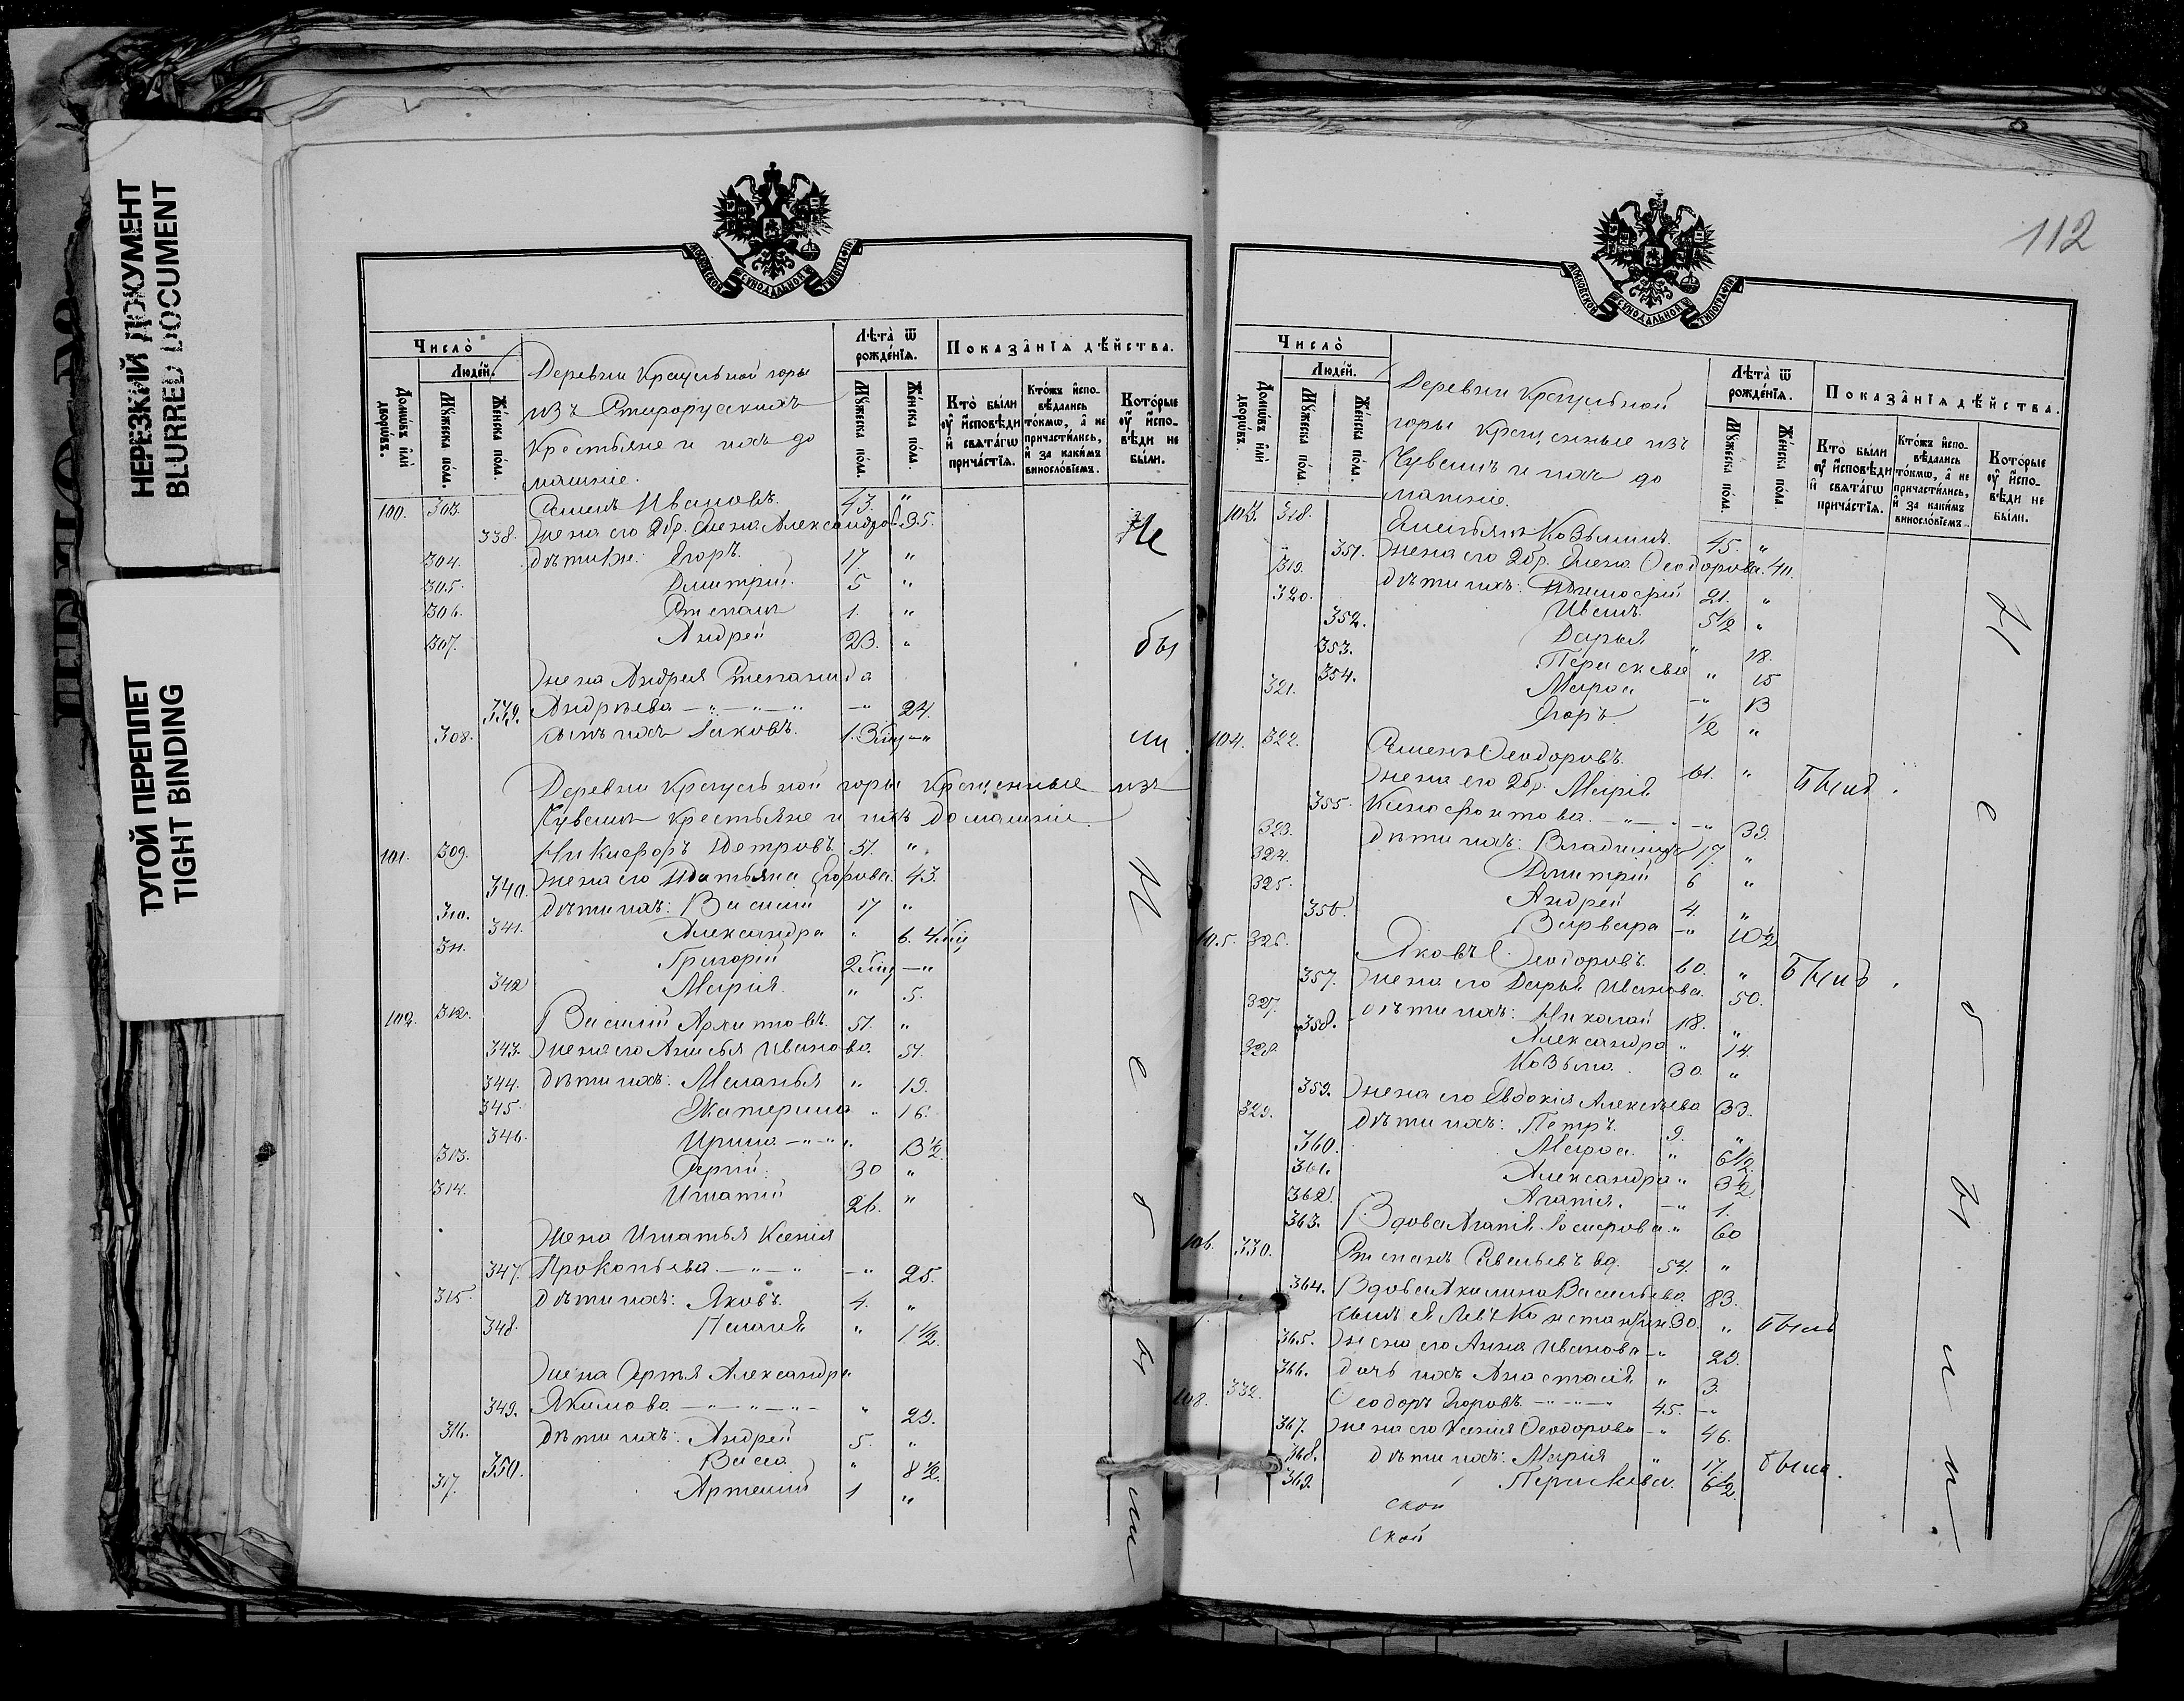 НЕРЕЗКИЙ ДОКУМЕНТ
BLURRED DOCUMENT
ТУГОЙ ПЕРЕПЛЕТ
TIGHT BINDING
МОСКОВСКОЙ СУНОДАЛЬНОЙ ТИПОГРАФІИ
Число̀
Людей.
Домѡвъ и҆лѝ дворѡвъ.
Мꙋжеска пола.
Женска пола.
Деревни Кращельной горы
изъ Старорусскихъ
Крестьяне и ихъ до
машніе.
Лѣта̀ ѿ рожденїѧ.
Мꙋжеска пола.
Женска пола.
Показанїѧ дѣйства.
Кто̀ были ᲂу҆ и҆сповѣди и҆ свѧтагѡ причастїѧ.
Ктожъ и҆споvѣдались токмѡ, а҆ не причастились, и҆ за какимъ винословїемъ.
Которые ᲂу҆ и҆сповѣди не были.
100. 303. Семенъ Ивановъ. 43. "
338. Жена его 2 бр. Елена Александров. 35.
304. дѣти ихъ: Егоръ. 17. "
305. Дмитрій. 5 "
306. Степанъ 1. "
307. Андрей 23. "
Жена Андрея Степанида
339. Андрѣева — " — " — " 24.
308. сынъ ихъ Іаковъ. 1. "
Не бы ли.
Деревни Кращельной горы крещенные изъ
Чувашъ крестьяне и ихъ домашніе
101. 309. Никифоръ Петровъ 51. "
340. Жена его Татьяна Егорова. 43.
310. дѣти ихъ: Василій 17 "
341. Александра " 6.
311. Григорій — "
342 Марія. " 5.
102. 312. Василій Архиповъ. 51. "
343. Жена его Анисья Иванова. 51.
344. дѣти ихъ: Меланья " 19.
345. Екатерина " 16.
346. Ирина — " — " 13½.
313. Сергій. 30 "
314. Игнатій 26. "
Жена Игнатья Ксенія
347. Прокопьева — " — " — " 25.
315. дѣти ихъ: Яковъ. 4. "
348. Пелагея " 1½.
Жена Сергѣя Александра
349. Якимова — " — " — " 29.
316. дѣти ихъ: Андрей 5. "
350. Васса " 8½.
317. Артемій 1 "
Не были
112
МОСКОВСКОЙ СУНОДАЛЬНОЙ ТИПОГРАФІИ
Число̀
Людей.
Домѡвъ и҆лѝ дворѡвъ.
Мꙋжеска пола.
Женска пола.
Деревни Кращельной
горы крещенные изъ
Чувашъ и ихъ до
машніе.
Лѣта̀ ѿ рожденїѧ.
Мꙋжеска пола.
Женска пола.
Показанїѧ дѣйства.
Кто̀ были ᲂу҆ и҆сповѣди и҆ свѧтагѡ причастїѧ.
Ктожъ и҆сповѣдались токмѡ, а҆ не причастились, и҆ за какимъ винословїемъ.
Которые ᲂу҆ и҆сповѣди не были.
103. 318. Емельянъ Козьминъ. 45. "
351. Жена его 2 бр. Елена Ѳеодорова. 40.
319. дѣти ихъ: Тимоѳей 21. "
320. Иванъ. 5½ "
352. Дарья " 18.
353. Параскева " 15
354. Марѳа — " 13
321. Егоръ. ½ "
104. 322. Семенъ Ѳеодоровъ. 61. " Былъ.
Жена его 2 бр. Марія
355. Ксенофонтова. — " — " 39.
323. дѣти ихъ: Владиміръ 17. "
324. Дмитрій 6 "
325. Андрей 4. "
356. Варвара — " 10½
105. 326. Яковъ Ѳеодоровъ. 60. " Былъ.
357. Жена его Дарья Иванова. 50.
327. дѣти ихъ: Николай 18. "
358. Александра " 14.
328. Козьма. 30. "
359. Жена его Евдокія Алексѣева 33.
329. дѣти ихъ: Петръ. 9. "
360. Марѳа. " 6½.
361. Александра " 3½.
362. Агапія. — " 1.
363. Вдова Агапія " 60
106. 330. Степанъ Савельевъ вд. 54. "
364. Вдова Акилина Васильева. 83.
сынъ ея Левъ Константин 30. " Былъ
365. Жена его Анна Иванова — " 29.
366. дочь ихъ Анастасія " 3.
108. 332. Ѳеодоръ Егоровъ — " — " 45. — "
367. Жена его Ксенія Ѳеодорова — " 46.
368. дѣти ихъ: Марія " 17. была.
369. Параскева. 6½.
ской
ской
Не были.